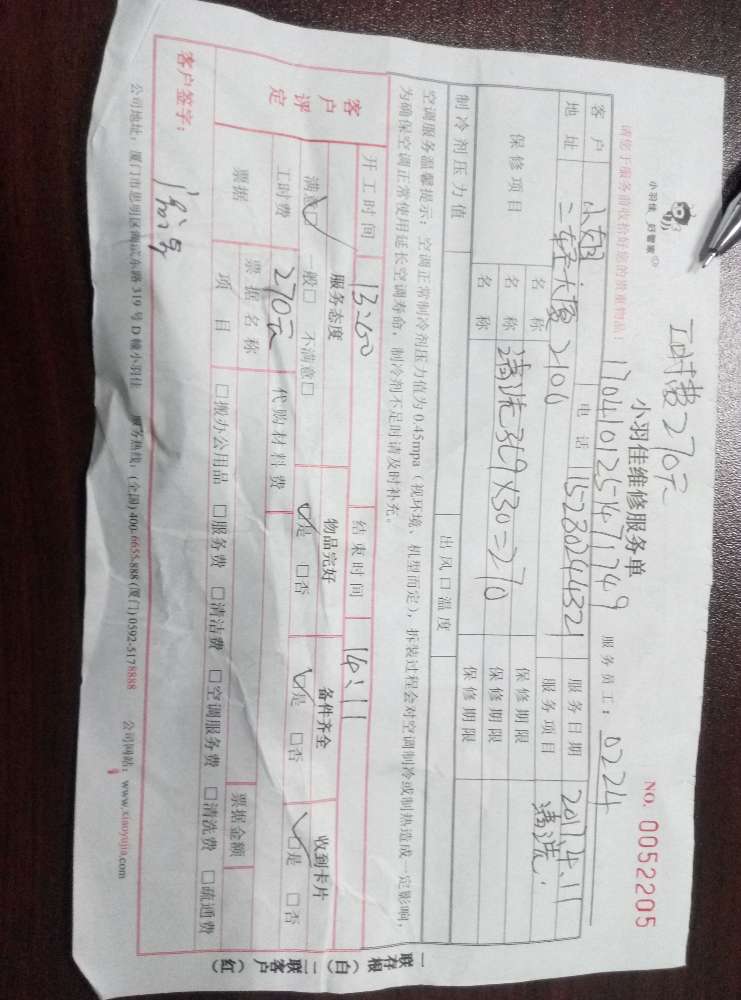 工时费270元
小羽佳 好管家
小羽佳维修服务单
NO. 0052205
请您于服务前收拾好您的贵重物品!
17041012547749
服务员工: 0224
客户 小姐 电话 15230244321 服务日期 2017.4.11
地址 二轻大厦 2106 服务项目 清洗.
保修项目 名称 保修期限
名称 清洗3台9×30=270 保修期限
名称 保修期限
制冷剂压力值 出风口温度
空调服务温馨提示:空调正常制冷剂压力值为0.45mpa(视环境、机型而定),拆装过程会对空调制冷或制热造成一定影响,
为确保空调正常使用延长空调寿命,制冷剂不足时请及时补充。
开工时间 13:50 结束时间 14:11
客户评定 服务态度 物品完好 备件齐全 收到卡片
满意□ 一般□ 不满意□ □是 □否 □是 □否 □是 □否
工时费 270元 代购材料费
票据 票据名称 票据金额
项目 □搬办公用品 □服务费 □清洁费 □空调服务费 □清洗费 □疏通费
客户签字:
公司地址:厦门市思明区湖滨东路319号D幢小羽佳 服务热线:(全国)400-6655-888 (厦门)0592-5178888 公司网站:www.xiaoyujia.com
一联存根(白) 二联客户(红)